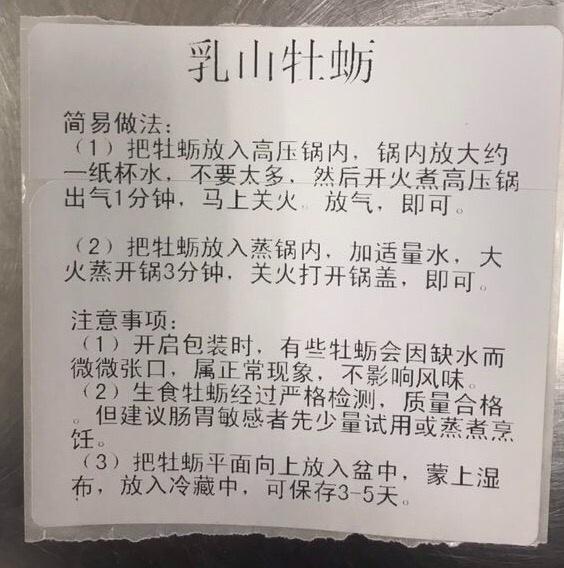 乳山牡蛎
简易做法:
(1)把牡蛎放入高压锅内,锅内放大约
一纸杯水,不要太多,然后开火煮高压锅
出气1分钟,马上关火。放气,即可。
(2)把牡蛎放入蒸锅内,加适量水,大
火蒸开锅3分钟,关火打开锅盖,即可。
注意事项:
(1)开启包装时,有些牡蛎会因缺水而
微微张口,属正常现象,不影响风味。
(2)生食牡蛎经过严格检测,质量合格
。但建议肠胃敏感者先少量试用或蒸煮烹
饪。
(3)把牡蛎平面向上放入盆中,蒙上湿
布,放入冷藏中,可保存3-5天。